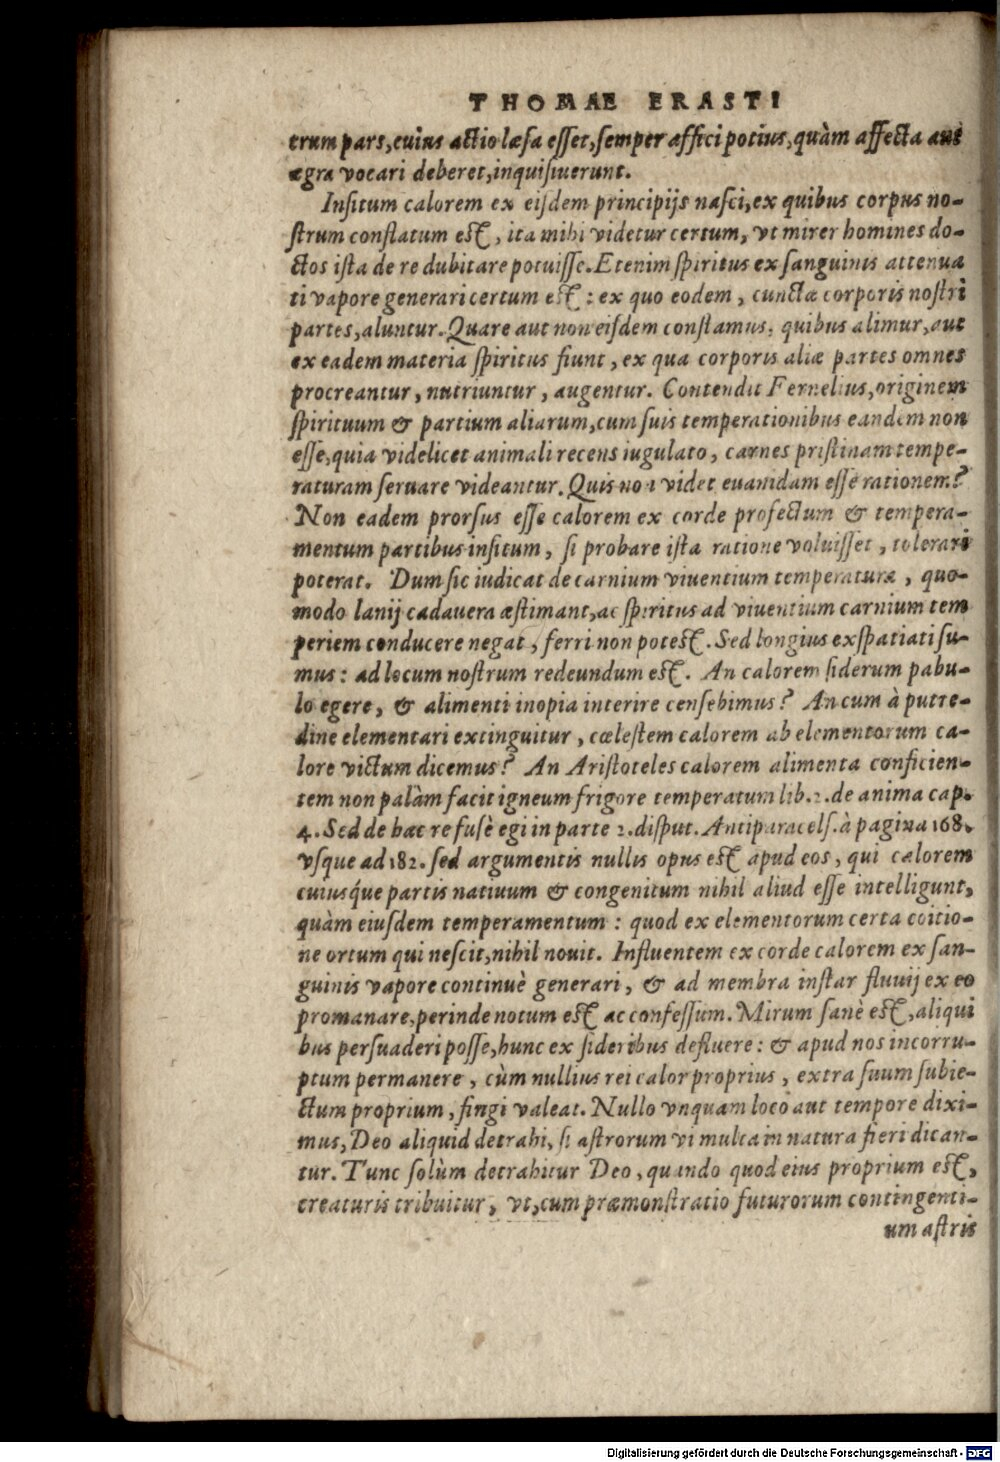 THOMAE ERASTI
trum pars, cuius actio læsa esset, semper affici potius, quàm affecta aut
ægra vocari deberet, inquisiuerunt.
Insitum calorem ex eisdem principijs nasci, ex quibus corpus no-
strum conflatum est, ita mihi videtur certum, vt mirer homines do-
ctos ista de re dubitare potuisse. Etenim spiritus ex sanguinis attenua
ti vapore generari certum est: ex quo eodem, cunctæ corporis nostri
partes, aluntur. Quare aut non eisdem constamus, quibus alimur, aut
ex eadem materia spiritus fiunt, ex qua corporis aliæ partes omnes
procreantur, nutriuntur, augentur. Contendit Fernelius, originem
spirituum & partium aliarum, cum suis temperationibus eandem non
esse, quia videlicet animali recens iugulato, carnes pristinam tempe-
raturam seruare videantur. Quis non videt euanidam esse rationem?
Non eadem prorsus esse calorem ex corde profectum & tempera-
mentum partibus insitum, si probare ista ratione voluisset, tolerari
poterat. Dum sic iudicat de carnium viuentium temperatura, quo-
modo lanij cadauera æstimant, ac spiritus ad viuentium carnium tem
periem conducere negat, ferri non potest. Sed longius exspatiati su-
mus: ad locum nostrum redeundum est. An calorem siderum pabu-
lo egere, & alimenti inopia interire censebimus? An cum à putre-
dine elementari extinguitur, cœlestem calorem ab elementorum ca-
lore victum dicemus? An Aristoteles calorem alimenta conficien-
tem non palàm facit igneum frigore temperatum lib. 2. de anima cap.
4. Sed de hac re fusè egi in parte 2. disput. Antiparacels. à pagina 168.
vsque ad 182. sed argumentis nullis opus est apud eos, qui calorem
cuiusq́ue partis natiuum & congenitum nihil aliud esse intelligunt,
quàm eiusdem temperamentum: quod ex elementorum certa coitio-
ne ortum qui nescit, nihil nouit. Influentem ex corde calorem ex san-
guinis vapore continuè generari, & ad membra instar fluuij ex eo
promanare, perinde notum est ac confessum. Mirum sanè est, aliqui
bus persuaderi posse, hunc ex sideribus defluere: & apud nos incorru-
ptum permanere, cùm nullius rei calor proprius, extra suum subie-
ctum proprium, fingi valeat. Nullo vnquam loco aut tempore dixi-
mus, Deo aliquid detrahi, si astrorum vi multa in natura fieri dican-
tur. Tunc solùm detrahitur Deo, quando quod eius proprium est,
creaturis tribuitur, vt, cum præmonstratio futurorum contingenti-
um astris
Digitalisierung gefördert durch die Deutsche Forschungsgemeinschaft - DFG